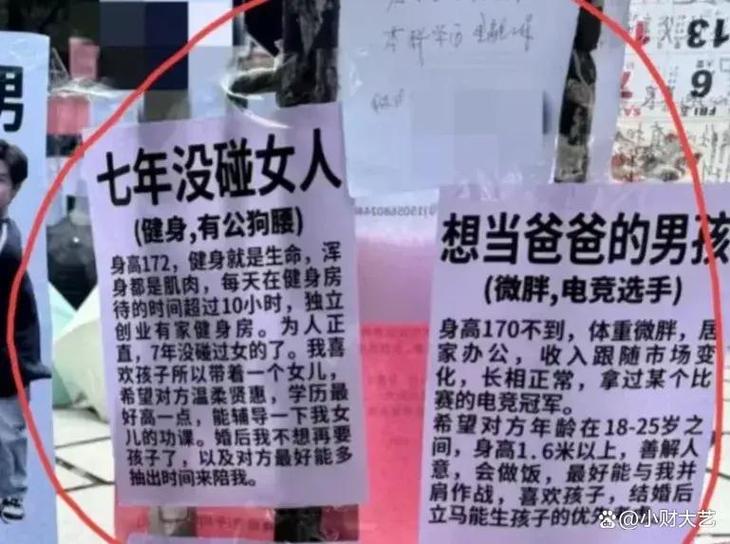 男
本科学历
七年没碰女人
(健身,有公狗腰)
身高172，健身就是生命，浑
身都是肌肉，每天在健身房
待的时间超过10小时，独立
创业有家健身房。为人正
直，7年没碰过女的了。我喜
欢孩子所以带着一个女儿，
希望对方温柔贤惠，学历最
好高一点，能辅导一下我女
儿的功课。婚后我不想再要
孩子了，以及对方最好能多
抽出时间来陪我。
想当爸爸的男孩
(微胖,电竞选手)
身高170不到，体重微胖，居
家办公，收入跟随市场变
化，长相正常，拿过某个比
赛的电竞冠军。
希望对方年龄在18-25岁之
间，身高1.6米以上，善解人
意，会做饭，最好能与我并
肩作战，喜欢孩子，结婚后
立马能生孩子的优先
13
6
FRI
小财大艺